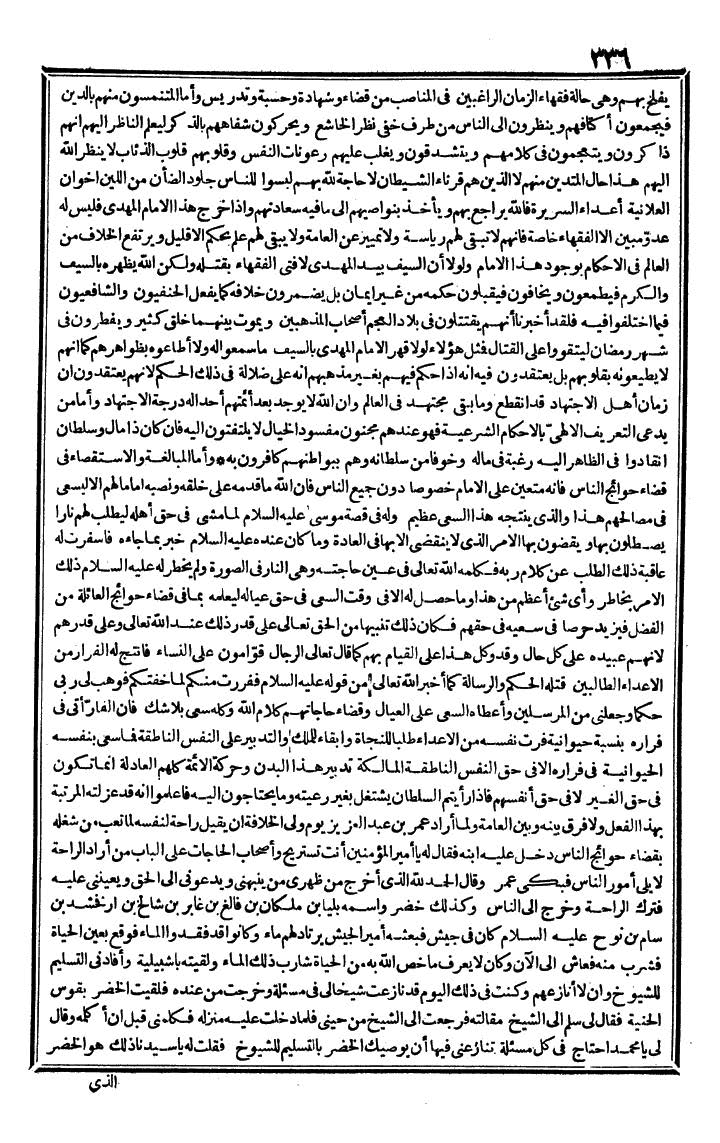 ٣٣٦
يفلح بهم وهى حالة فقهاء الزمان الراغبين فى المناصب من قضاء وشهادة وحسبة وتدريس وأما المتنمسون منهم بالدين
فيجمعون أكتافهم وينظرون الى الناس من طرف خفى نظر الخاشع ويحركون شفاههم بالذكر ليعلم الناظر اليهم انهم
ذاكرون ويتعجمون فى كلامهم ويتشدقون ويغلب عليهم رعونات النفس وقلوبهم قلوب الذئاب لا ينظر الله
اليهم هذا حال المتدين منهم لا الذين هم قرناء الشيطان لا حاجة لله بهم لبسوا للناس جلود الضأن من اللين اخوان
العلانية أعداء السريرة فالله يراجع بهم ويأخذ بنواصيهم الى ما فيه سعادتهم واذا خرج هذا الامام المهدى فليس له
عدو مبين الا الفقهاء خاصة فانهم لا تبقى لهم رياسة ولا تمييز عن العامة ولا يبقى لهم علم بحكم الا قليل ويرتفع الخلاف من
العالم فى الاحكام بوجود هذا الامام ولولا أن السيف بيد المهدى لافتى الفقهاء بقتله ولكن الله يظهره بالسيف
والكرم فيطمعون ويخافون فيقبلون حكمه من غير ايمان بل يضمرون خلافه كما يفعل الحنفيون والشافعيون
فيما اختلفوا فيه فلقد أخبرنا أنهم يقتتلون فى بلاد العجم أصحاب المذهبين ويموت بينهما خلق كثير ويفطرون فى
شهر رمضان ليتقووا على القتال فمثل هؤلاء لولا قهر الامام المهدى بالسيف ما سمعوا له ولا أطاعوه بظواهرهم كما انهم
لا يطيعونه بقلوبهم بل يعتقدون فيه انه اذا حكم فيهم بغير مذهبهم انه على ضلالة فى ذلك الحكم لانهم يعتقدون ان
زمان أهل الاجتهاد قد انقطع وما بقى مجتهد فى العالم وان الله لا يوجد بعد أئمتهم أحدا له درجة الاجتهاد وأما من
يدعى التعريف الالهىّ بالاحكام الشرعية فهو عندهم مجنون مفسود الخيال لا يلتفتون اليه فان كان ذا مال وسلطان
انقادوا فى الظاهر اليه رغبة فى ماله وخوفا من سلطانه وهم ببواطنهم كافرون به * وأما المبالغة والاستقصاء فى
قضاء حوائج الناس فانه متعين على الامام خصوصا دون جميع الناس فان الله ما قدمه على خلقه ونصبه اماما لهم الا ليسعى
فى مصالحهم هذا والذى ينتجه هذا السعى عظيم وله فى قصة موسى عليه السلام لما مشى فى حق أهله ليطلب لهم نارا
يصطلون بها ويقضون بها الامر الذى لا ينقضى الا بها فى العادة وما كان عنده عليه السلام خبر بما جاءه فاسفرت له
عاقبة ذلك الطلب عن كلام ربه فكلمه الله تعالى فى عين حاجته وهى النار فى الصورة ولم يخطر له عليه السلام ذلك
الامر بخاطر وأى شئ أعظم من هذا وما حصل له الا فى وقت السعى فى حق عياله ليعلمه بما فى قضاء حوائج العائلة من
الفضل فيزيد حرصا فى سعيه فى حقهم فكان ذلك تنبيها من الحق تعالى على قدر ذلك عند الله تعالى وعلى قدرهم
لانهم عبيده على كل حال وقد وكل هذا على القيام بهم كما قال تعالى الرجال قوّامون على النساء فانتج له الفرار من
الاعداء الطالبين قتله الحكم والرسالة كما أخبر الله تعالى من قوله عليه السلام ففررت منكم لما خفتكم فوهب لى ربى
حكما وجعلنى من المرسلين وأعطاه السعى على العيال وقضاء حاجاتهم كلام الله وكله سعى بلا شك فان الفارّ أتى فى
فراره بنسبة حيوانية فرت نفسه من الاعداء طلبا للنجاة وابقاء للملك والتدبير على النفس الناطقة فما سعى بنفسه
الحيوانية فى فراره الا فى حق النفس الناطقة المالكة تدبير هذا البدن وحركة الائمة كلهم العادلة انما تكون
فى حق الغير لا فى حق أنفسهم فاذا رأيتم السلطان يشتغل بغير رعيته وما يحتاجون اليه فاعلموا انه قد عزلته المرتبة
بهذا الفعل ولا فرق بينه وبين العامة ولما أراد عمر بن عبد العزيز يوم ولى الخلافة ان يقيل راحة لنفسه لما تعب من شغله
بقضاء حوائج الناس دخل عليه ابنه فقال له يا أمير المؤمنين أنت تستريح وأصحاب الحاجات على الباب من أراد الراحة
لا يلى أمور الناس فبكى عمر وقال الحمد لله الذى أخرج من ظهرى من ينبهنى ويدعونى الى الحق ويعيننى عليه
فترك الراحة وخرج الى الناس وكذلك خضر واسمه بليا بن ملكان بن فالغ بن غابر بن شالخ بن ارفخشد بن
سام بن نوح عليه السلام كان فى جيش فبعثه أمير الجيش يرتاد لهم ماء وكانوا قد فقدوا الماء فوقع بعين الحياة
فشرب منه فعاش الى الآن وكان لا يعرف ما خص الله به من الحياة شارب ذلك الماء ولقيته باشبيلية وأفادنى التسليم
للشيوخ وان لا أنازعهم وكنت فى ذلك اليوم قد نازعت شيخا لى فى مسئلة وخرجت من عنده فلقيت الخضر بقوس
الحنية فقال لى سلم الى الشيخ مقالته فرجعت الى الشيخ من حينى فلما دخلت عليه منزله فكلمنى قبل ان أكلمه وقال
لى يا محمد احتاج فى كل مسئلة تنازعنى فيها أن يوصيك الخضر بالتسليم للشيوخ فقلت له يا سيدنا ذلك هو الخضر
الذي